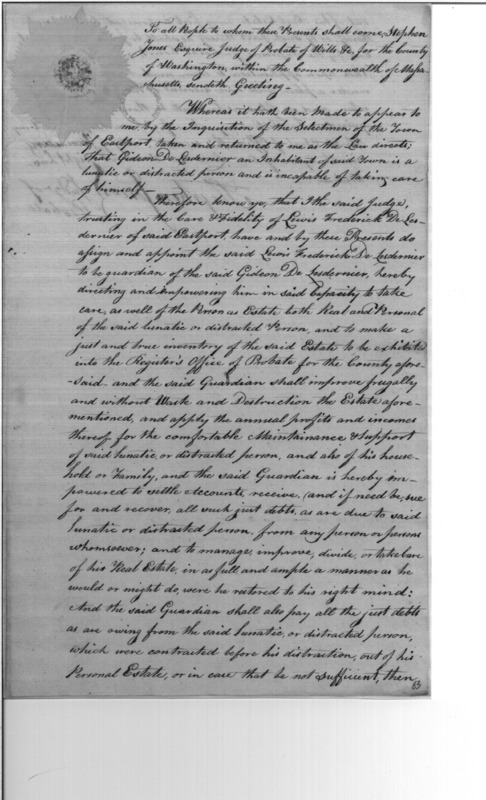 To all People to whom these Presents shall come, Stephen
Jones Esquire Judge of Probate of Wills &c, for the County
of Washington, within the Commonwealth of Massa
chusetts, sendeth Greeting—
Whereas it hath been made to appear to
me by the Inquisition of the Selectmen of the Town
of Eastport, taken and returned to me as the Law directs,
that Gideon De Lesdernier an Inhabitant of said Town is a
lunatic or distracted person and is incapable of taking care
of himself—
Therefore know ye, that I the said Judge,
trusting in the Care & Fidelity of Lewis Frederick De Les-
dernier of said Eastport, have and by these Presents do
assign and appoint the said Lewis Frederick De Lesdernier
to be guardian of the said Gideon De Lesdernier, hereby
directing and empowering him in said Capacity to take
care, as well of the Person as Estate both Real and Personal
of the said lunatic or distracted Person, and to make a
just and true inventory of the said Estate to be exhibited
into the Register's Office of Probate for the County afore-
-said. and the said Guardian shall improve frugally
and without Waste and Destruction the Estate afore-
mentioned, and apply the annual profits and incomes
thereof for the comfortable Maintainance & Support
of said lunatic, or distracted person, and also of his house-
hold or Family, and the said Guardian is hereby im-
powered to settle Accounts, receive, (and if need be, sue
for and recover, all such just debts, as are due to said
lunatic or distracted person, from any person or persons
whomsoever; and to manage, improve, divide, or take care
of his Real Estate, in as full and ample a manner as he
would or might do, were he restored to his right mind:
And the said Guardian shall also pay all the just debts
as are owing from the said lunatic, or distracted person,
which were contracted before his distraction, out of his
Personal Estate, or in case that be not sufficient, then
63